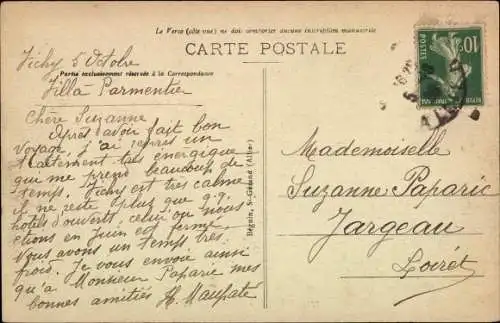 Le Verso (côté vue) ne doit comporter aucune inscription manuscrite
CARTE POSTALE
Partie exclusivement réservée à la Correspondance
Vichy 5 Octobre
Villa Parmentier
Chère Suzanne
Après avoir fait bon
voyage, j'ai repris un
traitement très énergique
qui me prend beaucoup de
temps. Vichy est très calme
il ne reste plus que q.q.
hôtels d'ouvert, celui où nous
étions en Juin est fermé.
Nous avons un temps très
froid. Je vous envoie ainsi
qu'à Monsieur Paparic mes
bonnes amitiés H.
Béguin, St-Gérand (Allier)
POSTES
10c
Mademoiselle
Suzanne Paparic
Jargeau
Loiret